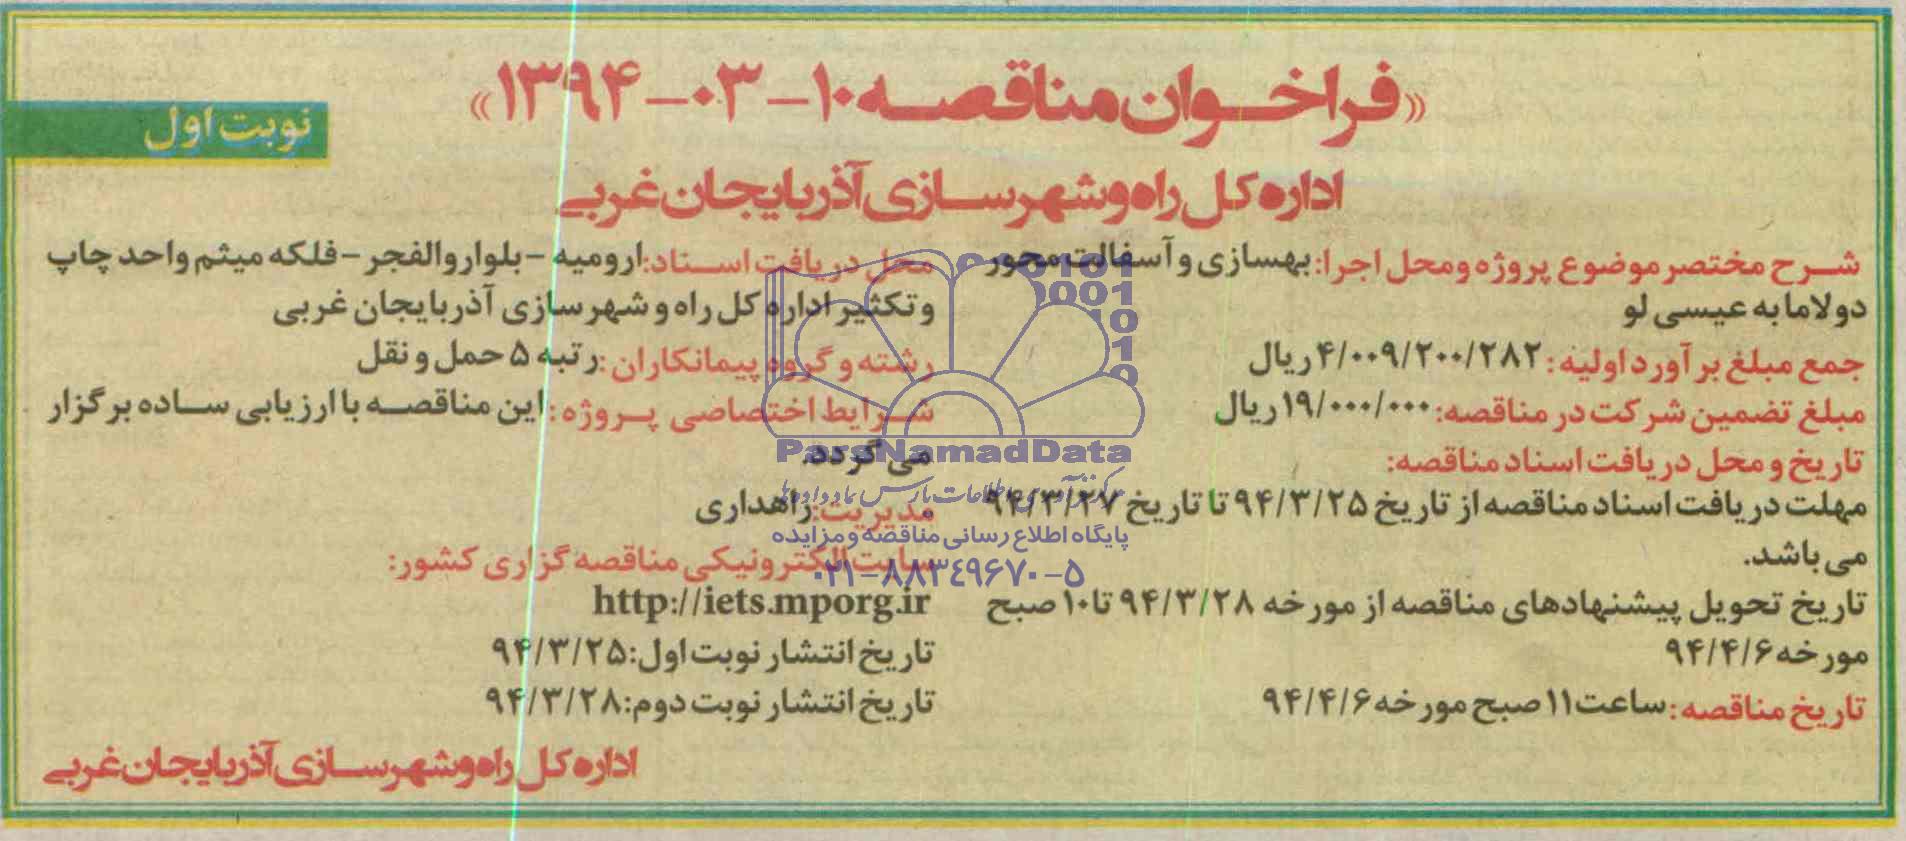 «فراخوان مناقصه ۱۰-۰۳-۱۳۹۴»
نوبت اول
اداره کل راه و شهرسازی آذربایجان غربی
شرح مختصر موضوع پروژه و محل اجرا: بهسازی و آسفالت محور
دولاما به عیسی لو
جمع مبلغ برآورد اولیه: ۴/۰۰۹/۲۰۰/۲۸۲ ریال
مبلغ تضمین شرکت در مناقصه: ۱۹/۰۰۰/۰۰۰ ریال
تاریخ و محل دریافت اسناد مناقصه:
مهلت دریافت اسناد مناقصه از تاریخ ۹۴/۳/۲۵ تا تاریخ ۹۴/۳/۲۷
می باشد.
تاریخ تحویل پیشنهادهای مناقصه از مورخه ۹۴/۳/۲۸ تا ۱۰ صبح
مورخه ۹۴/۴/۶
تاریخ مناقصه: ساعت ۱۱ صبح مورخه ۹۴/۴/۶
محل دریافت اسناد: ارومیه - بلوار والفجر - فلکه میثم واحد چاپ
و تکثیر اداره کل راه و شهرسازی آذربایجان غربی
رشته و گروه پیمانکاران: رتبه ۵ حمل و نقل
شرایط اختصاصی پروژه: این مناقصه با ارزیابی ساده برگزار
می گردد.
مدیریت: راهداری
سایت الکترونیکی مناقصه گزاری کشور:
http://iets.mporg.ir
تاریخ انتشار نوبت اول: ۹۴/۳/۲۵
تاریخ انتشار نوبت دوم: ۹۴/۳/۲۸
اداره کل راه و شهرسازی آذربایجان غربی
ParsNamadData
مرکز فرآوری اطلاعات پارس نماد داده ها
پایگاه اطلاع رسانی مناقصه و مزایده
۰۲۱-۸۸۳۴۹۶۷۰-۵